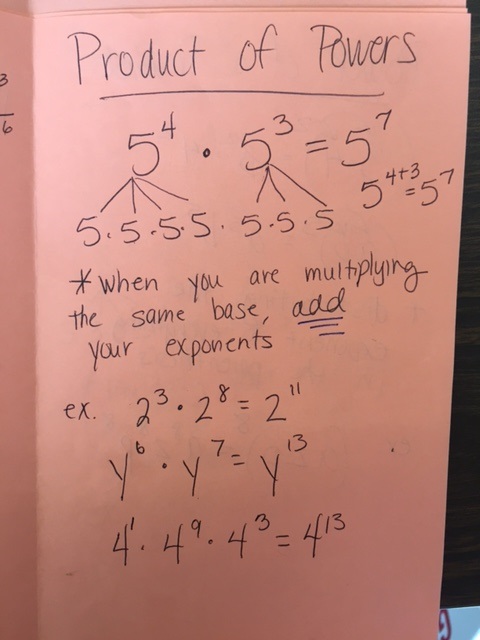 3
6
Product of Powers
5⁴ · 5³ = 5⁷
5⁴⁺³ = 5⁷
5 · 5 · 5 · 5 · 5 · 5 · 5
* When you are multiplying
the same base, add
your exponents
ex. 2³ · 2⁸ = 2¹¹
y⁶ · y⁷ = y¹³
4¹ · 4⁹ · 4³ = 4¹³